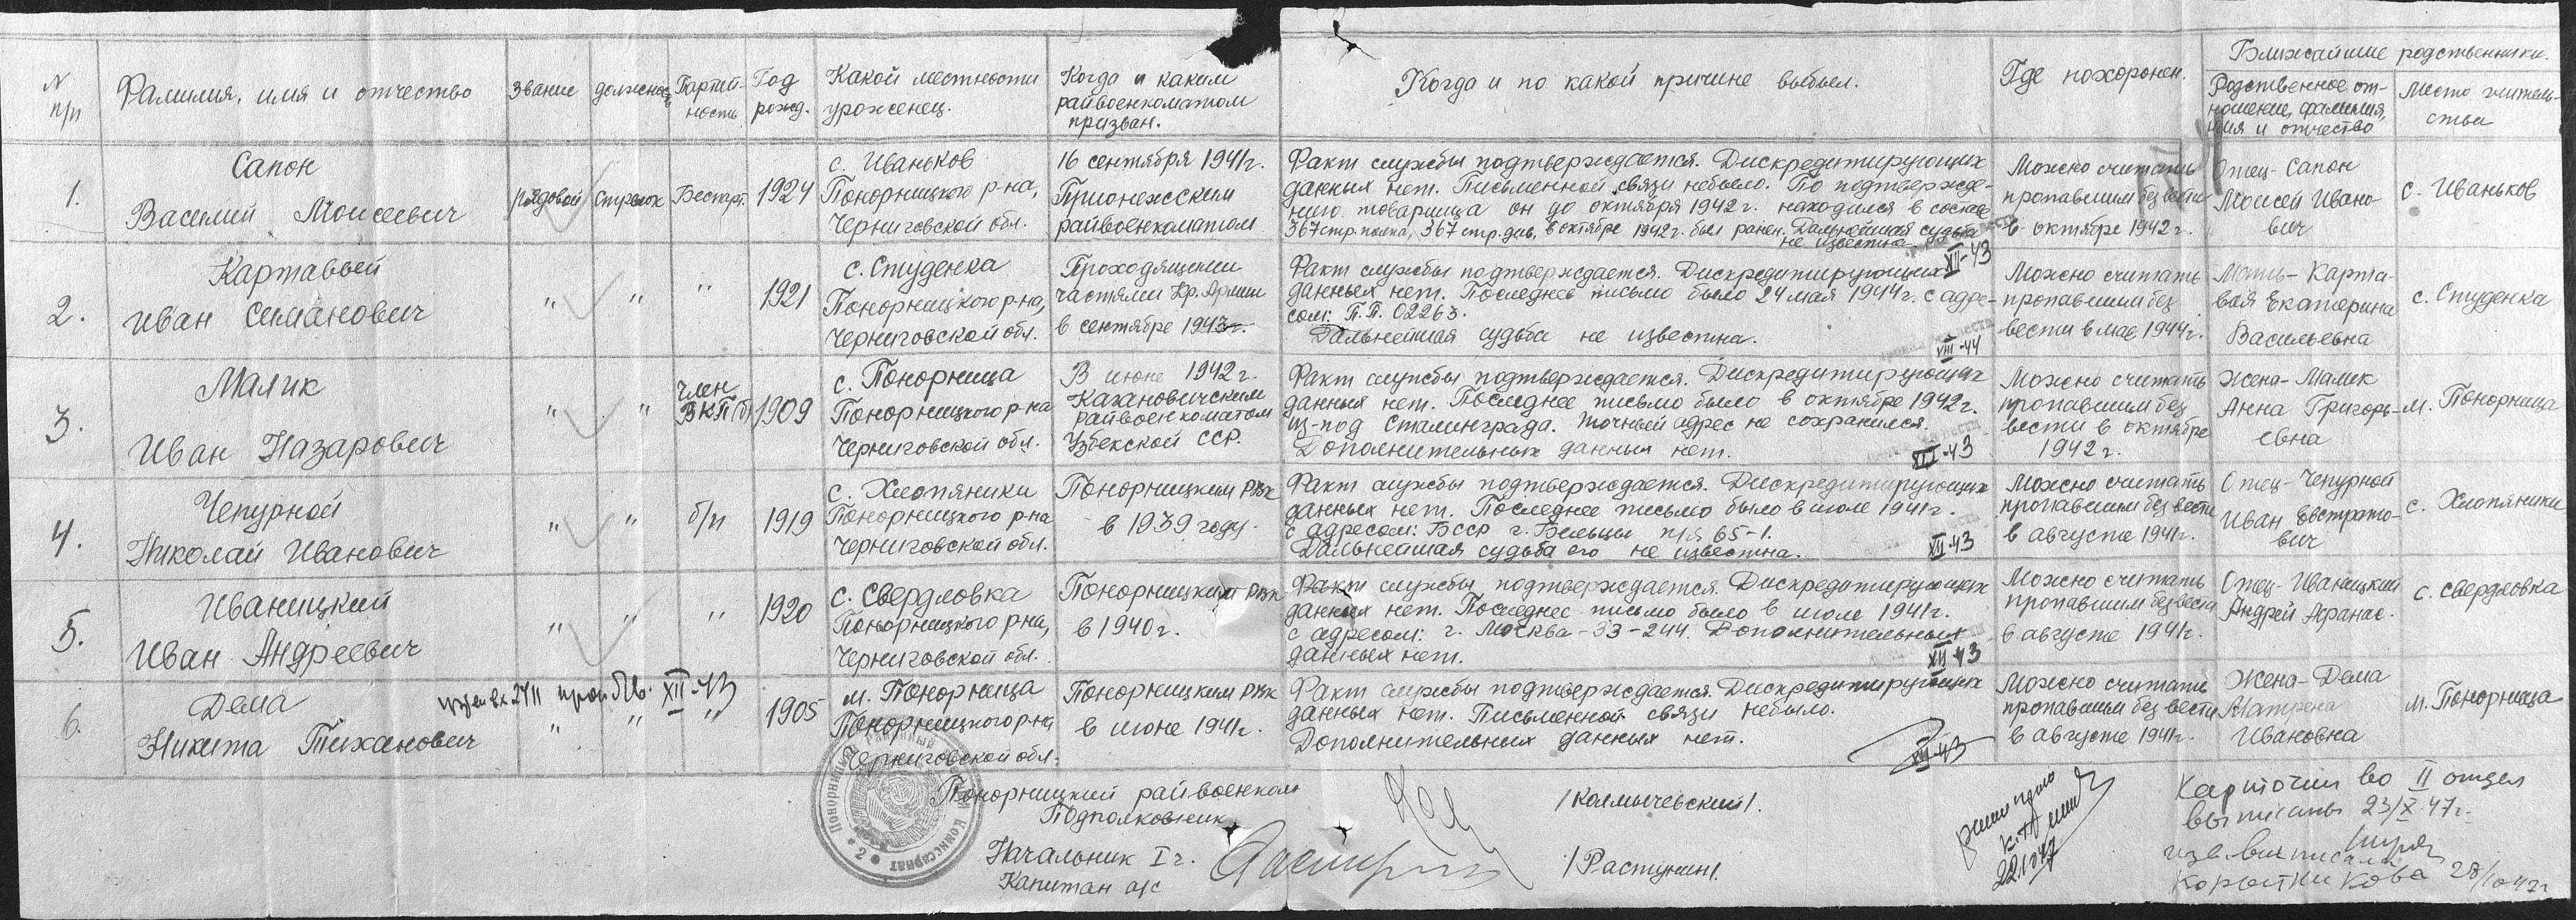 N п/п
Фамилия, имя и отчество
Звание
должность
Партий-
ность
Год
рожд.
Какой местности
уроженец.
Когда и каким
райвоенкоматом
призван.
Когда и по какой причине выбыл.
Где похоронен.
Ближайшие родственники.
Родственное от-
ношение, фамилия,
имя и отчество
Место житель-
ства
1.
Сапон
Василий Моисеевич
рядовой
Стрелок
Беспарт.
1924
с. Иваньков
Понорницкого р-на,
Черниговской обл.
16 сентября 1941г.
Прионежским
райвоенкоматом
Факт службы подтверждается. Дискредитирующих
данных нет. Письменной связи небыло. По подтвержде-
нию товарища он до октября 1942 г. находился в составе
367 стр. полка, 367 стр. див, в октябре 1942 г. был ранен. Дальнейшая судьба
не известна.
XII-43
Можно считать
пропавшим без вести
в октябре 1942 г.
Отец- Сапон
Моисей Ивано-
вич
с. Иваньков
2.
Картавый
Иван Симанович
"
"
"
1921
с. Студенка
Понорницкого р-на,
Черниговской обл.
Проходящими
частями Кр. Армии
в сентябре 1943г.
Факт службы подтверждается. Дискредитирующих
данных нет. Последнее письмо было 24 мая 1944г. с адре-
сом: П.П. 02263.
Дальнейшая судьба не известна.
VIII-44
Можно считать
пропавшим без
вести в мае 1944г.
Мать- Карта-
вая Екатерина
Васильевна
с. Студенка
3.
Малик
Иван Назарович
"
"
член
ВКП(б)
1909
с. Понорница
Понорницкого р-на
Черниговской обл.
В июне 1942 г.
Кагановичским
райвоенкоматом
Узбекской ССР.
Факт службы подтверждается. Дискредитирующих
данных нет. Последнее письмо было в октябре 1942г.
из-под Сталинграда. Точный адрес не сохранился.
Дополнительных данных нет.
XII-43
Можно считать
пропавшим без
вести в октябре
1942 г.
Жена- Малик
Анна Григорь-
евна
м. Понорница
4.
Чепурной
Николай Иванович
"
"
б/п
1919
с. Хлопяники
Понорницкого р-на
Черниговской обл.
Понорницким РВК
в 1939 году.
Факт службы подтверждается. Дискредитирующих
данных нет. Последнее письмо было в июле 1941г.
с адресом: БССР г. Бельцы п/я 65-1.
Дальнейшая судьба его не известна.
XII-43
Можно считать
пропавшим без вести
в августе 1941г.
Отец- Чепурной
Иван Евстрато-
вич
с. Хлопяники
5.
Иваницкий
Иван Андреевич
"
"
"
1920
с. Свердловка
Понорницкого р-на,
Черниговской обл.
Понорницким РВК
в 1940 г.
Факт службы подтверждается. Дискредитирующих
данных нет. Последнее письмо было в июле 1941г.
с адресом: г. Москва-33-244. Дополнительных
данных нет.
XII-43
Можно считать
пропавшим без вести
в августе 1941г.
Отец- Иваницкий
Андрей Афанас.
с. Свердловка
XII-43
6.
Дема
Никита Тиханович
"
"
"
1905
м. Понорница
Понорницкого р-на
Черниговской обл.
Понорницким РВК
в июне 1941г.
Факт службы подтверждается. Дискредитирующих
данных нет. Письменной связи небыло.
Дополнительных данных нет.
XII-43
Можно считать
пропавшим без вести
в августе 1941г.
Жена- Дема
Матрена
Ивановна
м. Понорница
Понорницкий райвоенком
Подполковник
/Калмычевский/.
Начальник I ч.
Капитан а/с
/Растунин/.
Комиссариат
* 2 *
Карточки во II отдел
выписаны 23/X 47г.
изв. выписала
Коротникова 28/10 47г